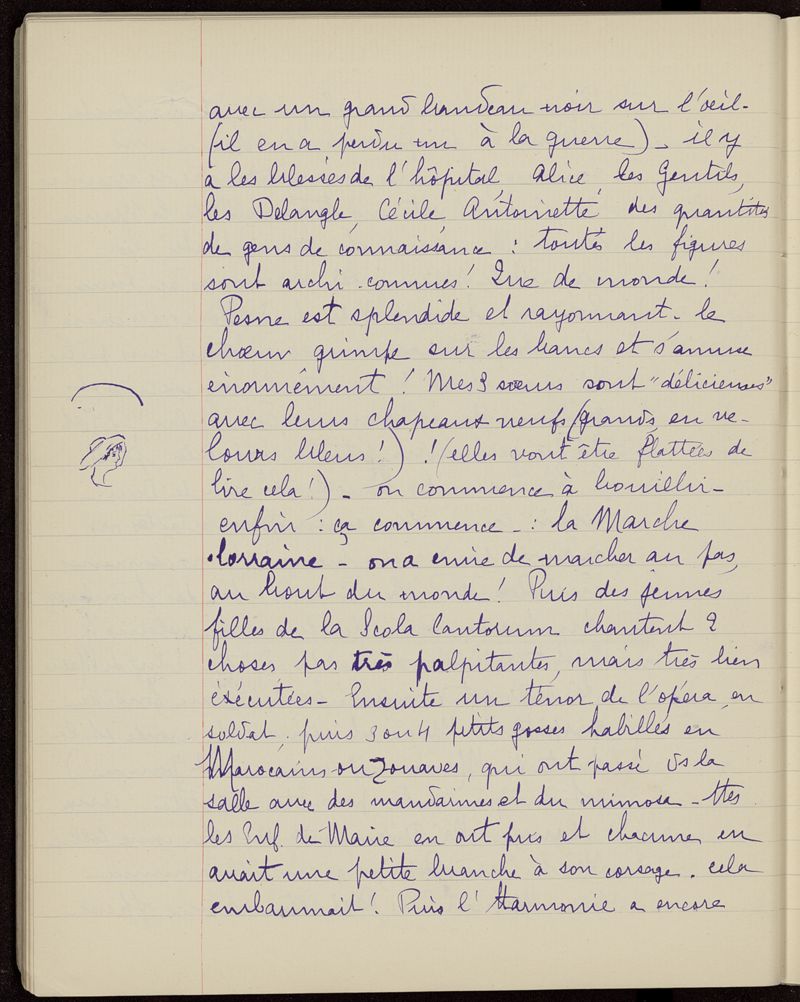 avec un grand bandeau noir sur l'œil -
(il en a perdu un à la guerre) - il y
a les blessés de l'hôpital, Alice, les Gentils,
les Delangle, Cécile, Antoinette, des quantités
de gens de connaissance : toutes les figures
sont archi-connues ! Que de monde !
Pesne est splendide et rayonnant. le
chœur grimpe sur les bancs et s'amuse
énormément ! Mes 3 sœurs sont "délicieuses"
avec leurs chapeaux neufs (grands, en ve-
lours bleus !) ! (elles vont être flattées de
lire cela !) - on commence à bouillir -
enfin : ça commence - : la Marche
lorraine - on a envie de marcher au pas,
au bout du monde ! Puis des jeunes
filles de la Scola Cantorum chantent 2
choses pas très palpitantes, mais très bien
éxécutées - Ensuite un ténor de l'opéra, en
soldat, puis 3 ou 4 petits gosses habillés en
Marocains ou Zouaves, qui ont passé ds la
salle avec des mandarines et du mimosa - ttes
les Enf. de Marie en ont pris et chacune en
avait une petite branche à son corsage. cela
embaumait ! Puis l'Harmonie a encore